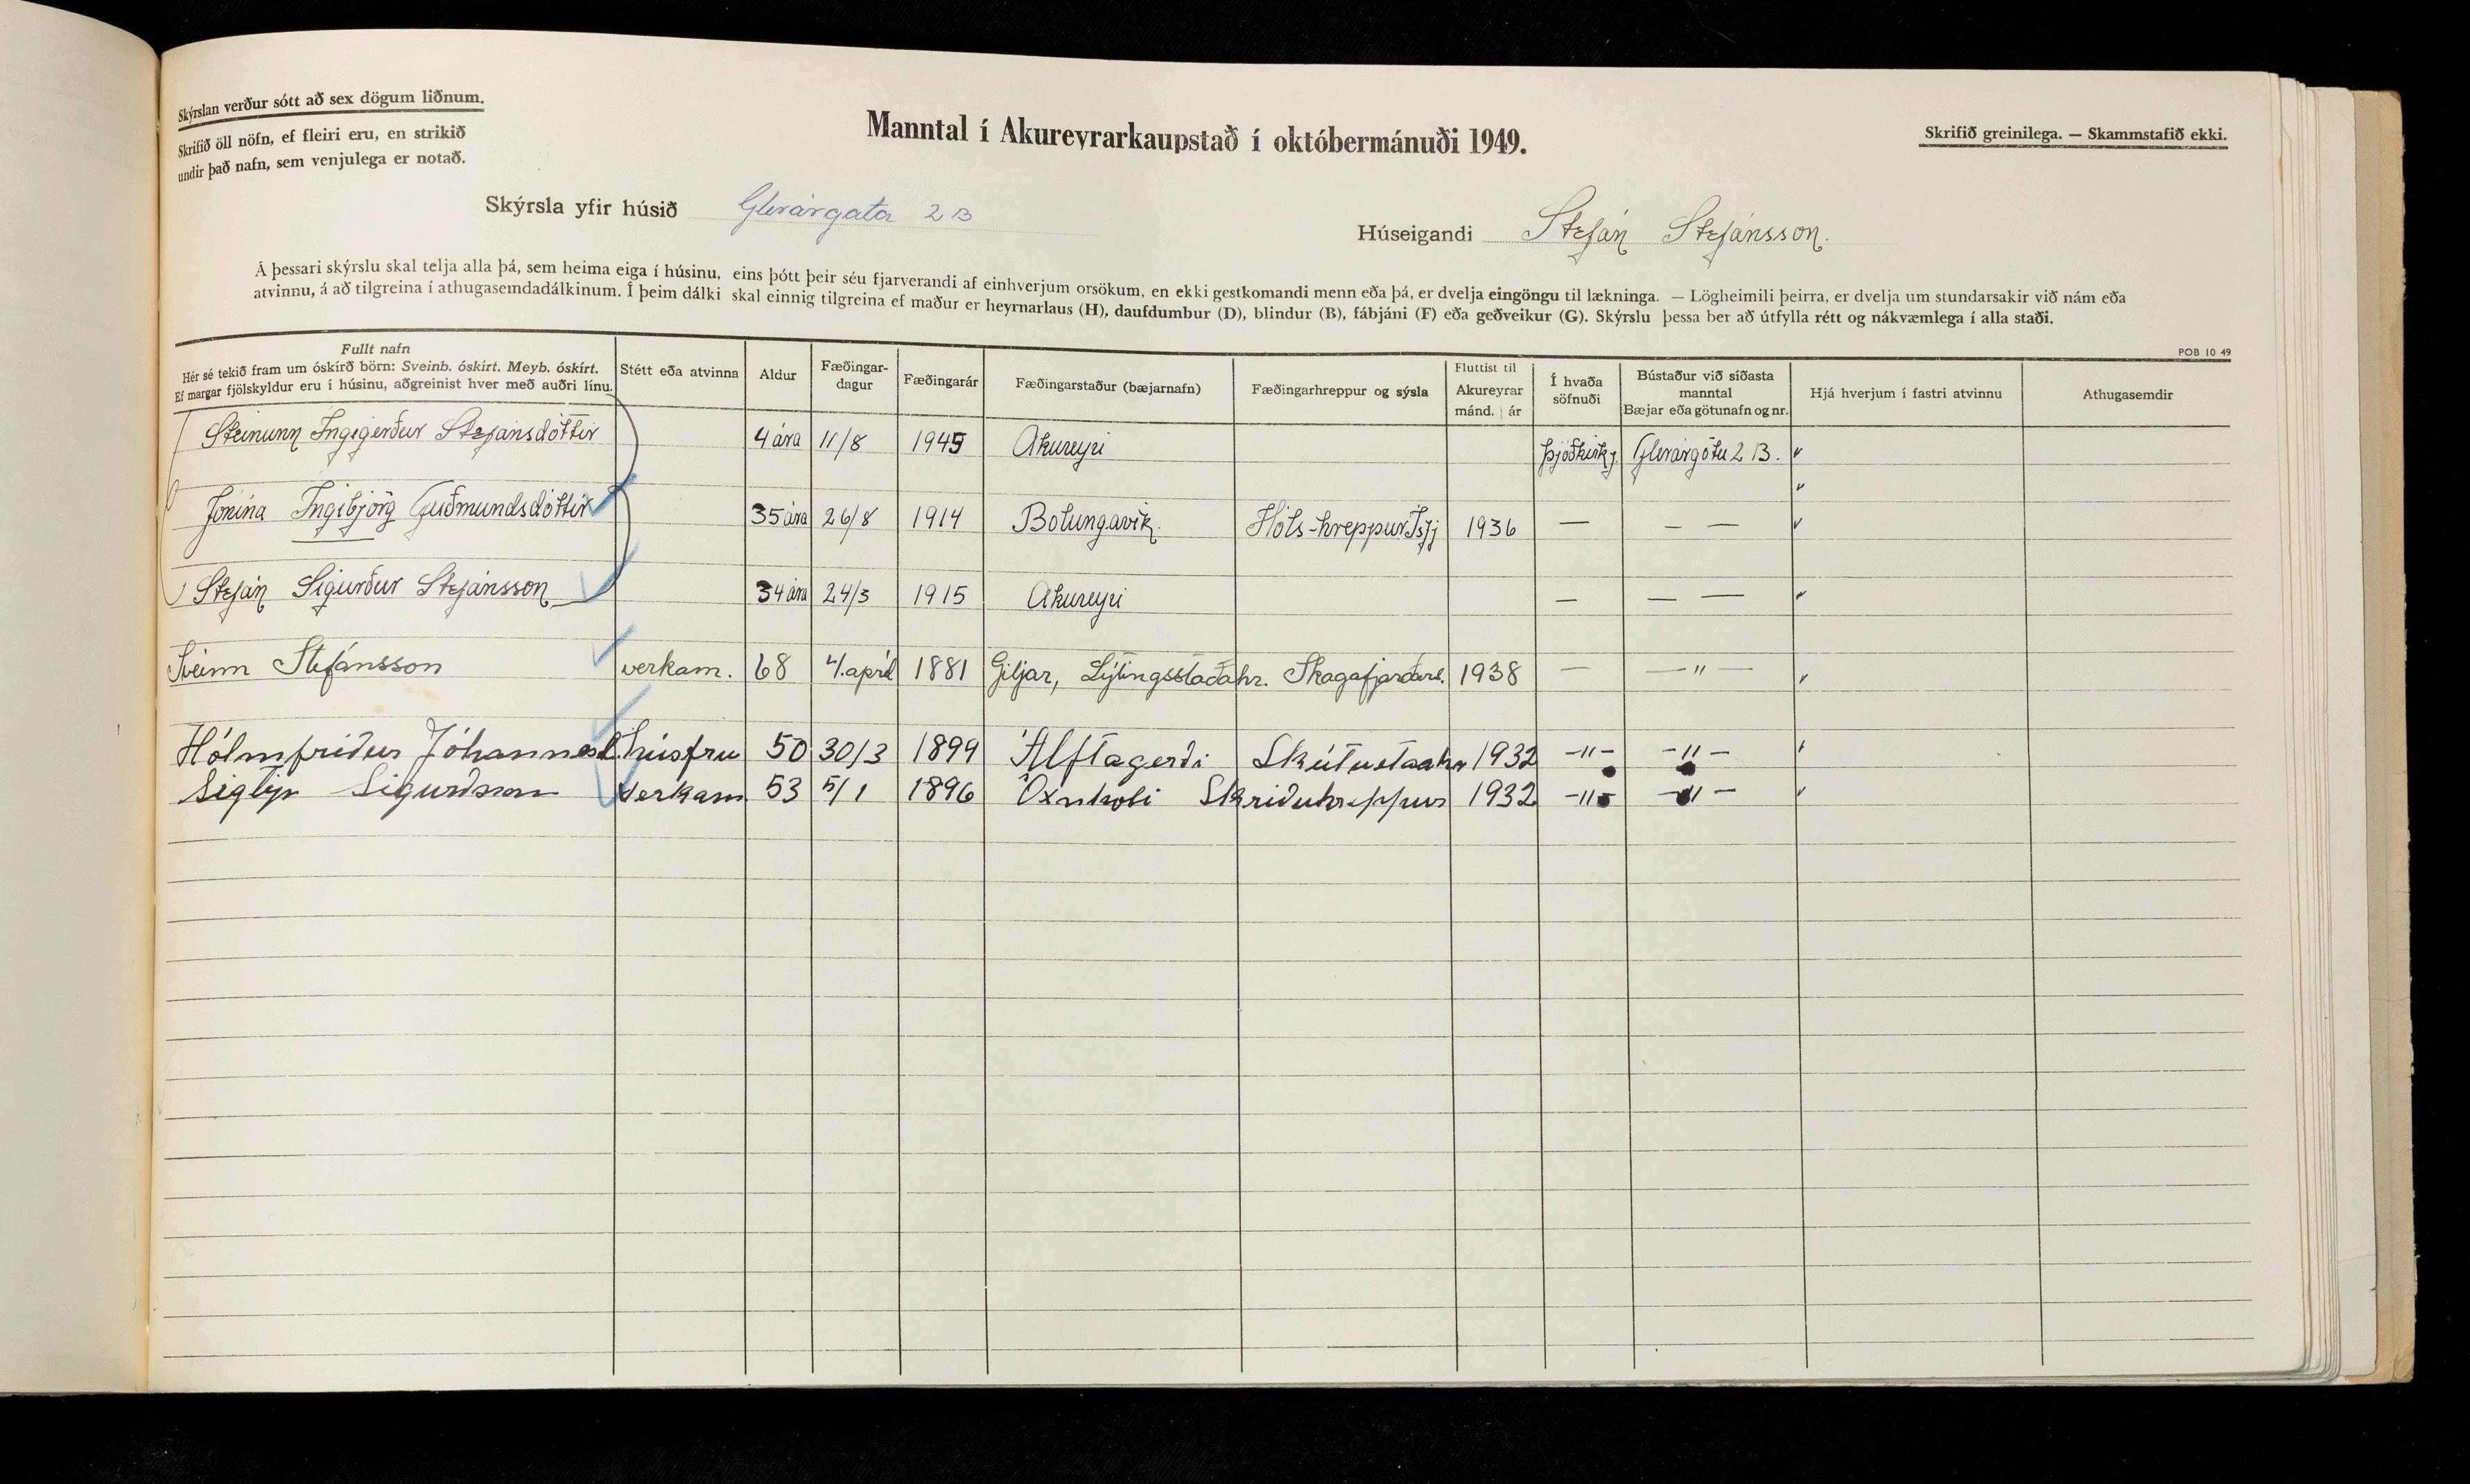 Skýrslan verður sótt að sex dögum liðnum.
Skrifið öll nöfn, ef fleiri eru, en strikið
undir það nafn, sem venjulega er notað.
Manntal í Akureyrarkaupstað í októbermánuði 1949.
Skrifið greinilega. — Skammstafið ekki.
Skýrsla yfir húsið Glerárgata 2 B
Húseigandi Stefán Stefánsson.
Á þessari skýrslu skal telja alla þá, sem heima eiga í húsinu, eins þótt þeir séu fjarverandi af einhverjum orsökum, en ekki gestkomandi menn eða þá, er dvelja eingöngu til lækninga. — Lögheimili þeirra, er dvelja um stundarsakir við nám eða
atvinnu, á að tilgreina í athugasemdadálkinum. Í þeim dálki skal einnig tilgreina ef maður er heyrnarlaus (H), daufdumbur (D), blindur (B), fábjáni (F) eða geðveikur (G). Skýrslu þessa ber að útfylla rétt og nákvæmlega í alla staði.
POB 10 49
Fullt nafn
Hér sé tekið fram um óskírð börn: Sveinb. óskírt. Meyb. óskírt.
Ef margar fjölskyldur eru í húsinu, aðgreinist hver með auðri línu.
Stétt eða atvinna
Aldur
Fæðingar-
dagur
Fæðingarár
Fæðingarstaður (bæjarnafn)
Fæðingarhreppur og sýsla
Fluttist til
Akureyrar
mánd. | ár
Í hvaða
söfnuði
Bústaður við síðasta
manntal
Bæjar eða götunafn og nr.
Hjá hverjum í fastri atvinnu
Athugasemdir
Steinunn Ingigerður Stefánsdóttir 4 ára 11/8 1945 Akureyri Þjóðkirkj. Glerárgötu 2 B. "
"
Jónína Ingibjörg Guðmundsdóttir 35 ára 26/8 1914 Bolungavík. Hóls-hreppur Ísfj 1936 — — — "
Stefán Sigurður Stefánsson 34 ára 24/3 1915 Akureyri — — — "
Sveinn Stefánsson verkam. 68 4. apríl 1881 Giljar, Lýtingsstaðahr. Skagafjarðars. 1938 — — " — "
Hólmfríður Jóhannesd. húsfrú 50 30/3 1899 Álftagerði Skútustaahr 1932 — " — — " — "
Sigtýr Sigurðsson verkam. 53 5/1 1896 Öxnhóli Skriðuhreppur 1932 — " — — " — "